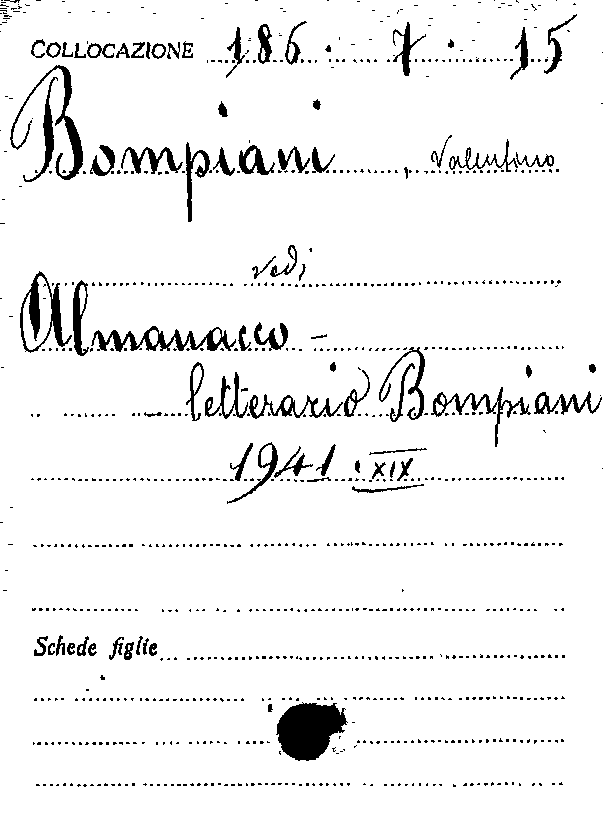 COLLOCAZIONE 186. 7. 15
Bompiani, Valentino
vedi
Almanacco -
- letterario Bompiani
1941 . XIX
Schede figlie